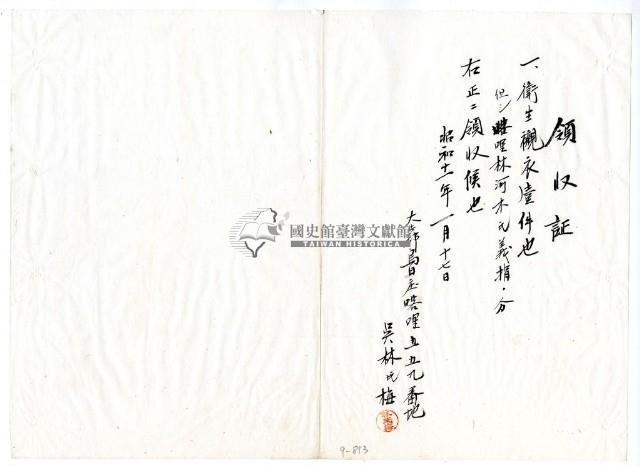 領收証
一、衛生襯衣壹件也
但シ 哩林河木氏義捐ノ分
右正ニ領收候也
昭和十一年一月十七日
大 郡 庄 哩五五九番地
吳林氏梅
國史館臺灣文獻館
TAIWAN HISTORICA
9-893